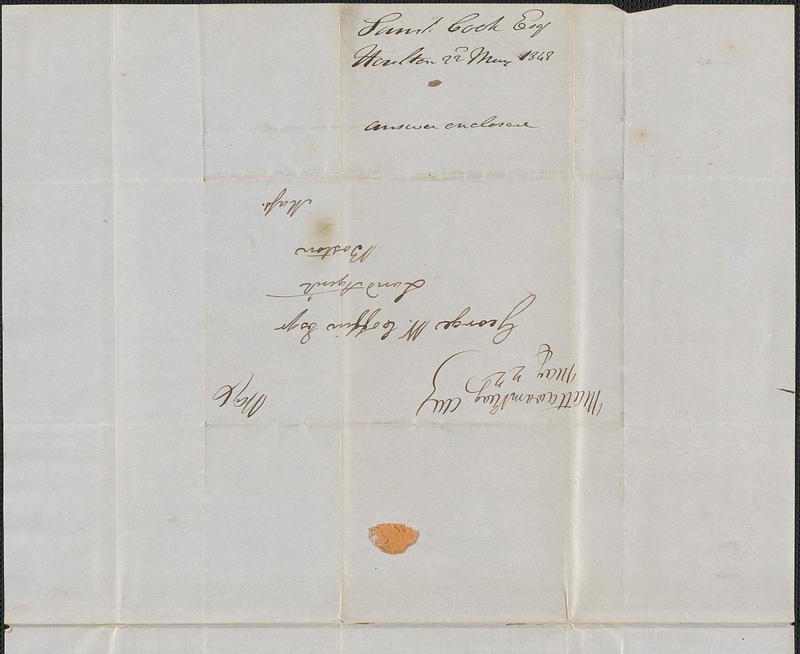 Saml. Cook Esq
Houlton 22d May 1848
answer enclosed
Mattawamkeag Me
May 22
George W. Coffin Esqr
Land Agent
Boston
Mass.